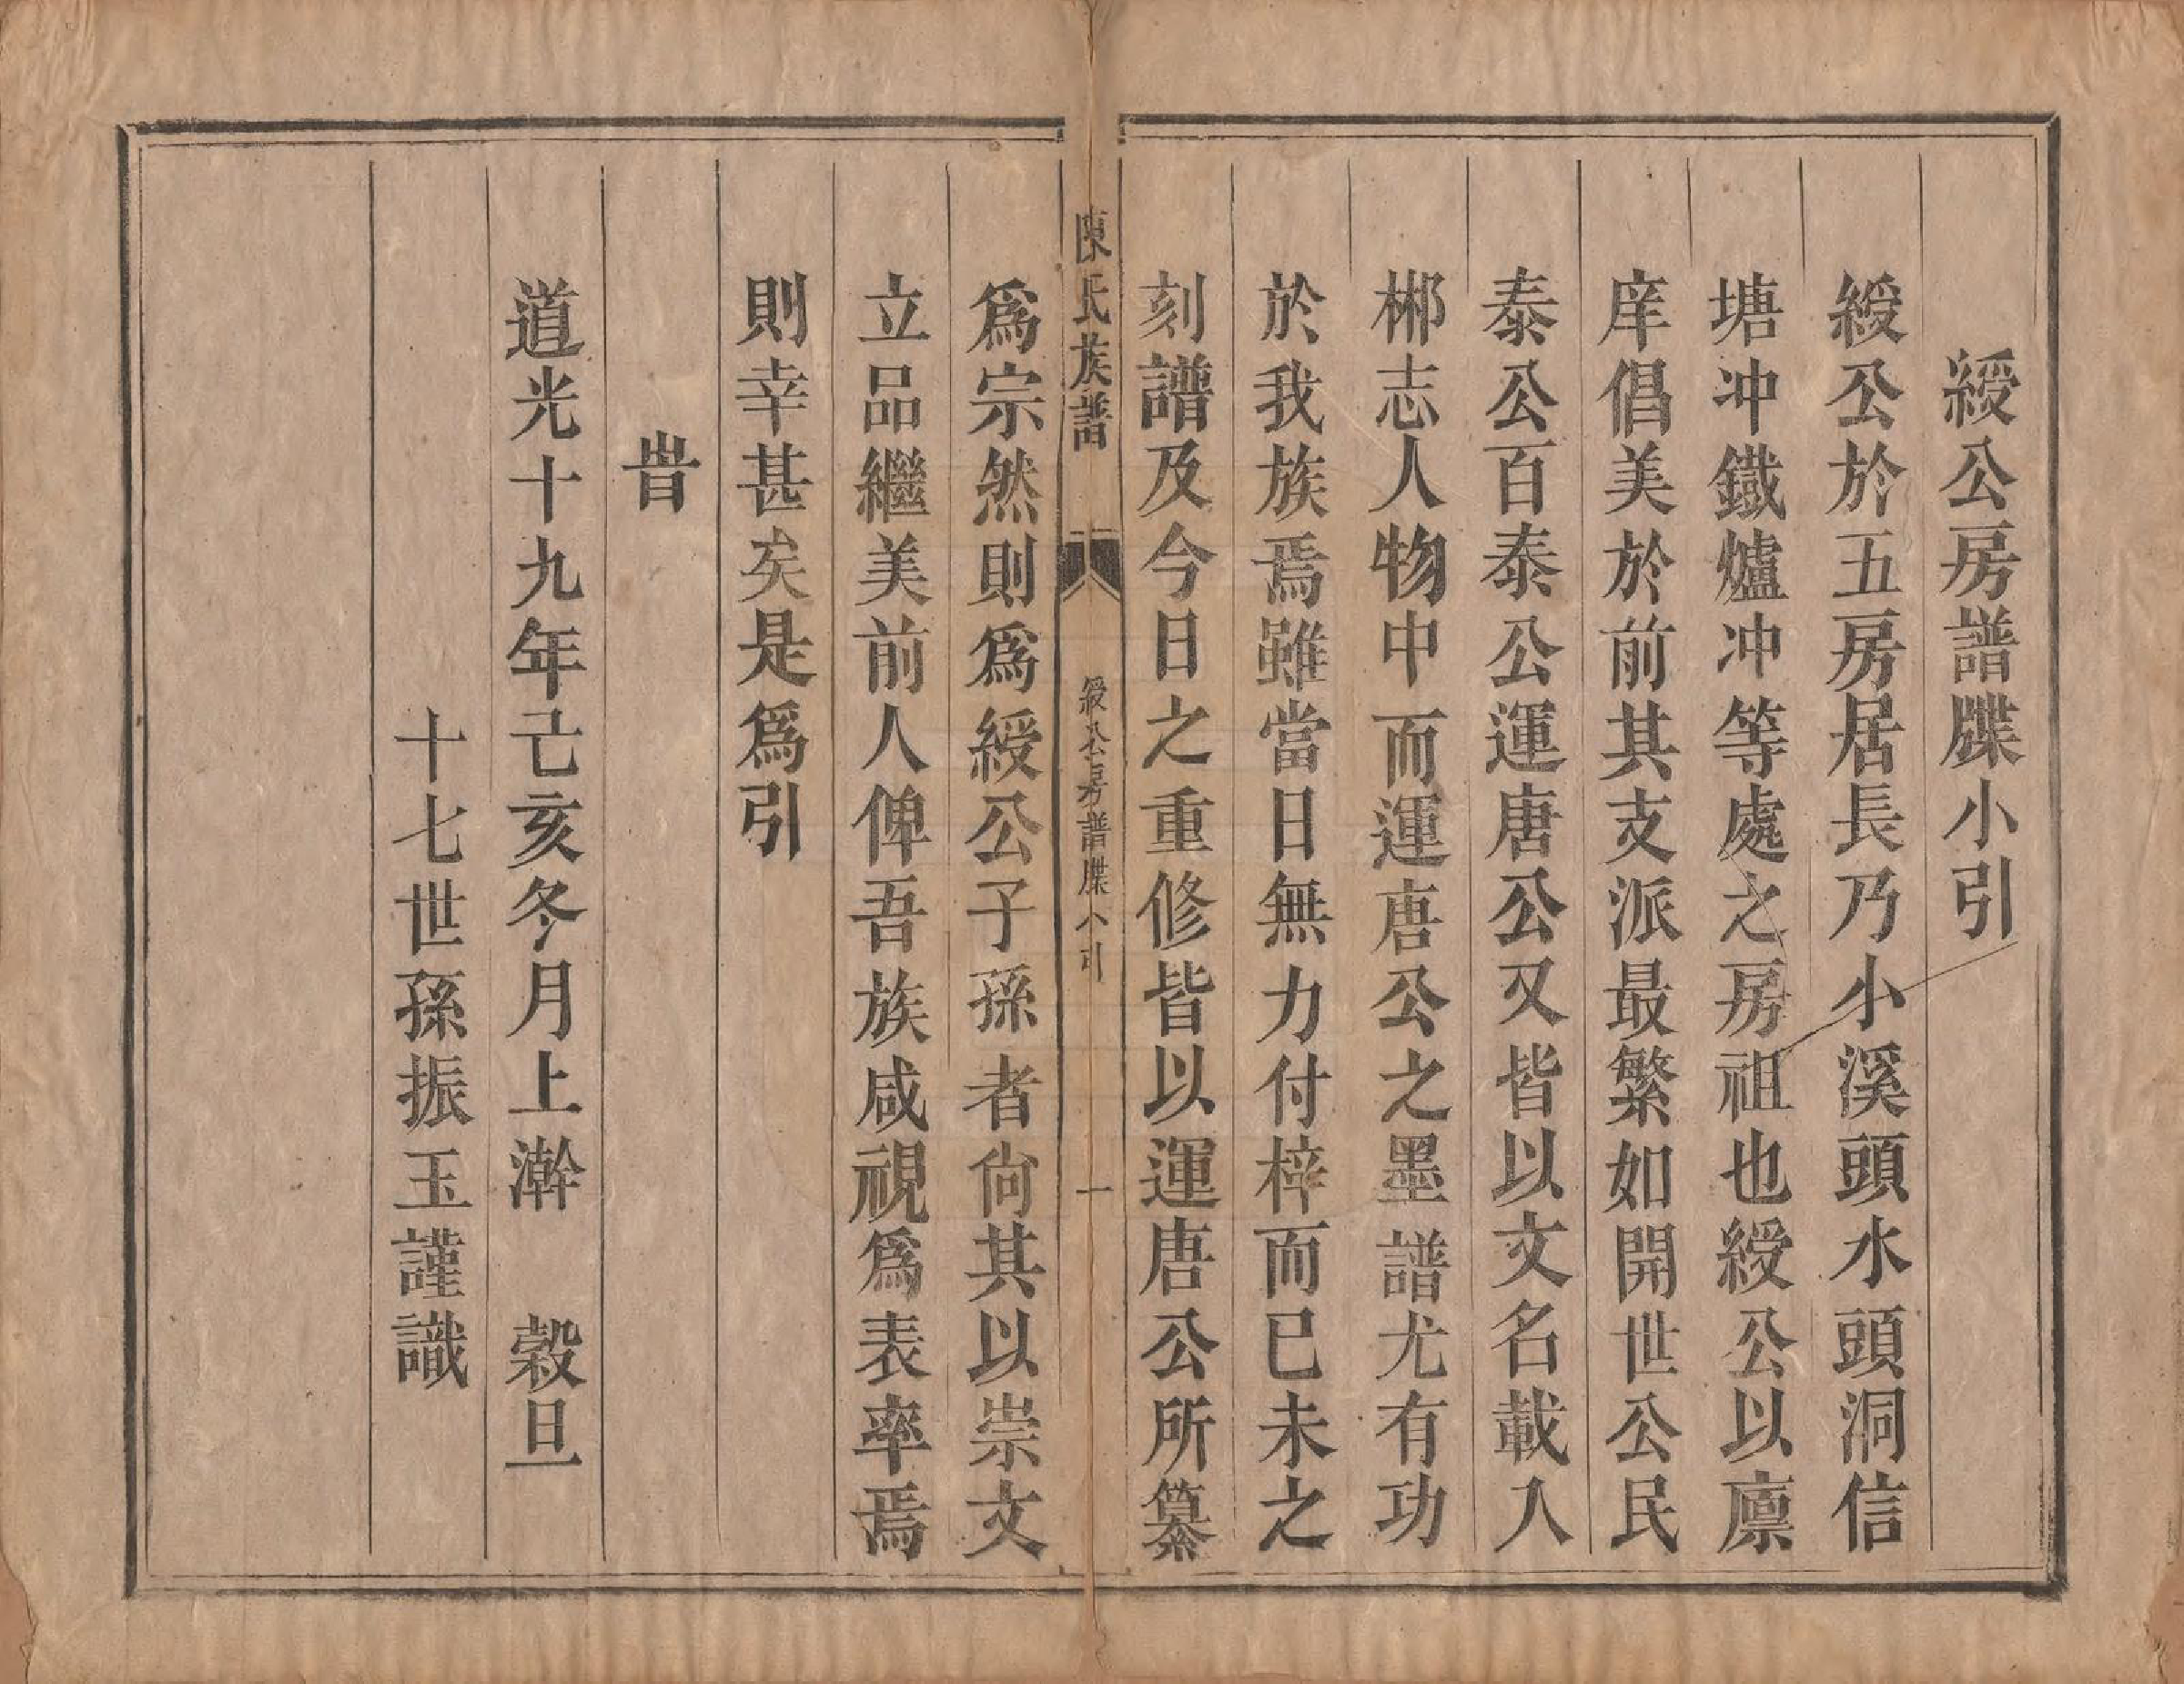 綬公房譜牒小引
綬公於五房居長乃小溪頭水頭洞信
塘冲鐵爐冲等處之房祖也綬公以廪
庠倡美於前其支派最繁如開世公民
泰公百泰公運唐公又皆以文名載入
郴志人物中而運唐公之墨譜尤有功
於我族焉雖當日無力付梓而已未之
刻譜及今日之重修皆以運唐公所纂
陳氏族譜
綬公房譜牒小引
一
爲宗然則爲綬公子孫者尙其以崇文
立品繼美前人俾吾族咸視爲表率焉
則幸甚矣是爲引
旹
道光十九年己亥冬月上澣　穀旦
十七世孫振玉謹識